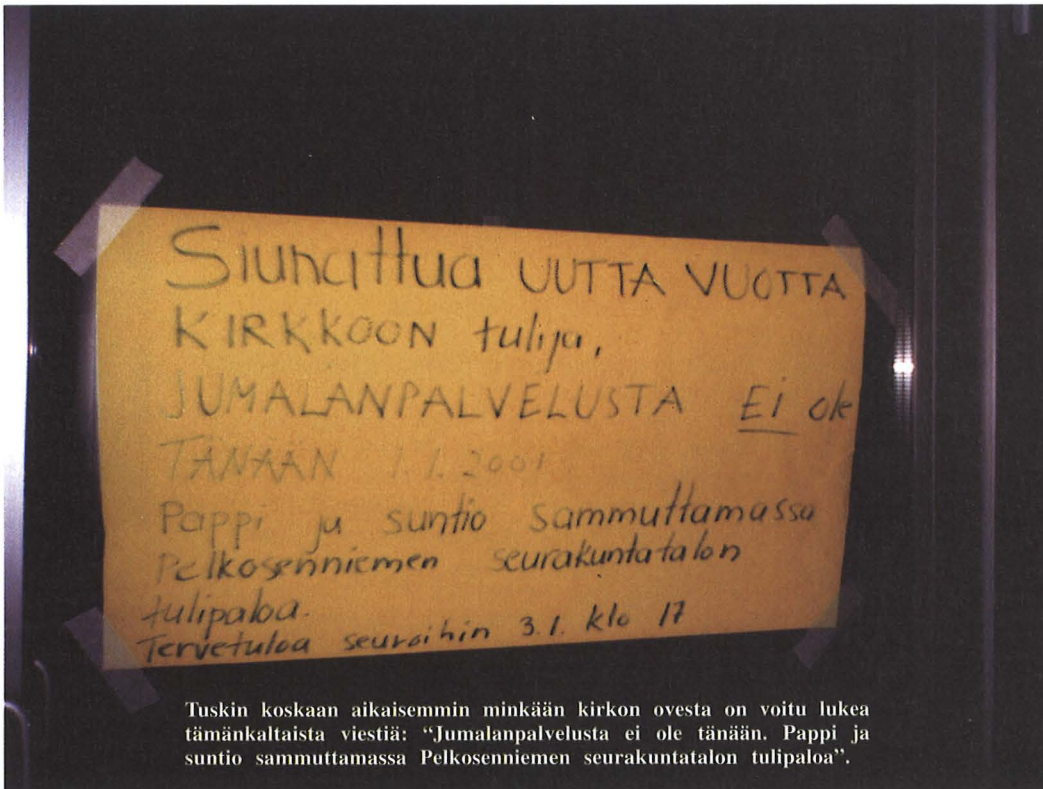 Siunattua UUTTA VUOTTA
KIRKKOON tulija,
JUMALANPALVELUSTA Ei ole
TÄNÄÄN 1.1.2001
Pappi ja suntio sammuttamassa
Pelkosenniemen seurakuntatalon
tulipaloa.
Tervetuloa seuroihin 3.1. klo 17
Tuskin koskaan aikaisemmin minkään kirkon ovesta on voitu lukea
tämänkaltaista viestiä: “Jumalanpalvelusta ei ole tänään. Pappi ja
suntio sammuttamassa Pelkosenniemen seurakuntatalon tulipaloa”.